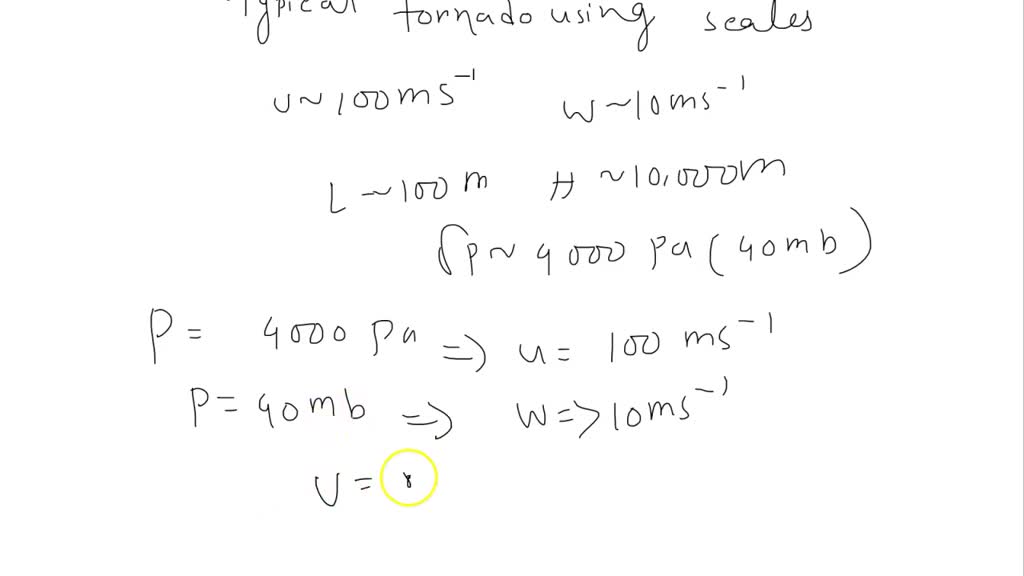 Typical tornado using scales
U ~ 100 ms⁻¹ W ~ 10 ms⁻¹
L ~ 100 m H ~ 10,000 m
δp ~ 4000 pa (40 mb)
P = 4000 pa => u = 100 ms⁻¹
P = 40 mb => W => 10 ms⁻¹
U =